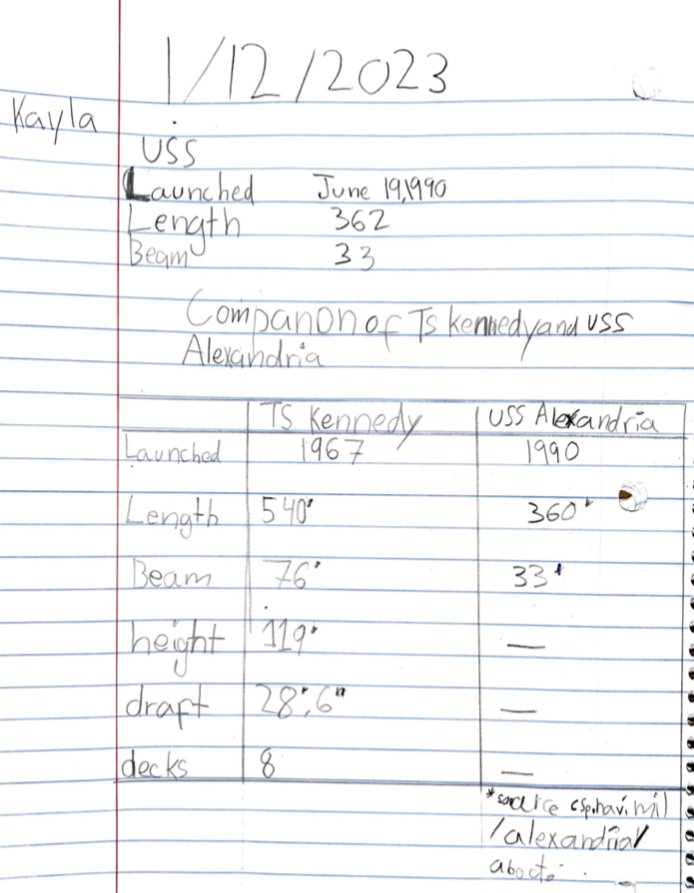 1/12/2023
Kayla
USS
Launched June 19,1990
Length 362
Beam 33
Companon of Ts kennedy and USS
Alexandria
TS Kennedy USS Alexandria
Launched 1967 1990
Length 540' 360'
Beam 76' 33'
height 119' —
draft 28',6" —
decks 8 —
*source csp.navi.mil
/alexandria/